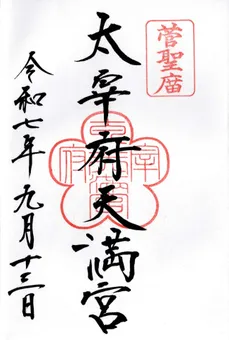 菅聖廟
太宰府天満宮
令和七年九月十三日